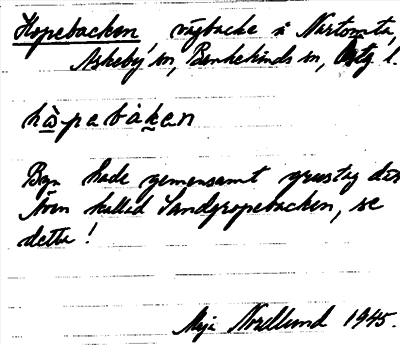 Hopebacken vägbacke i Nartomta,
Askeby sn, Bankekinds sn, Östg l.
hò̱pabàḵan
Byn hade gemensamt grustag där
Även kallad Sandgropebacken, se
detta!
Maja Norellund 1945.